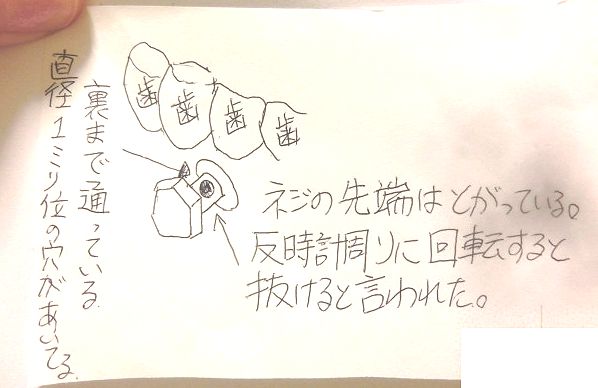 直径1ミリ位の穴があいてる
裏まで通っている
歯
歯
歯
歯
ネジの先端はとがっている。
反時計周りに回転すると
抜けると言われた。